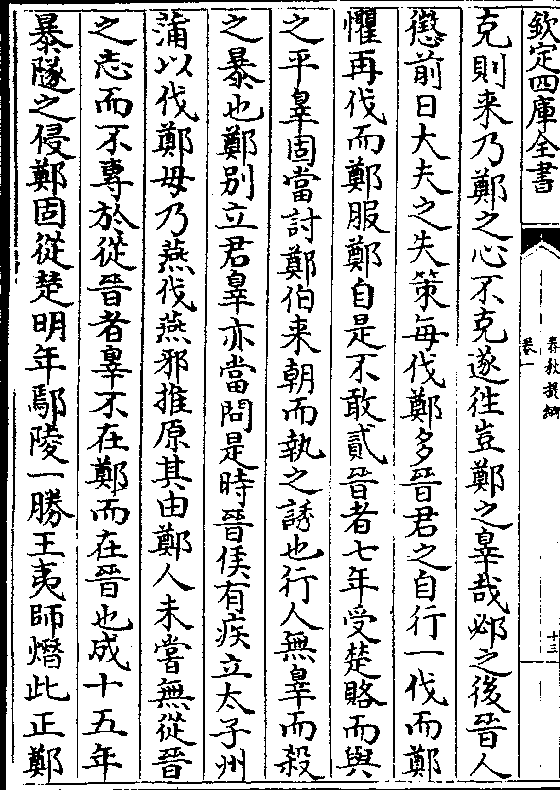 欽定四庫全書
春秋提綱
卷一
十三
克則来乃鄭之心不克遂徃豈鄭之辠哉邲之後晉人
懲前日大夫之失策每伐鄭多晉君之自行一伐而鄭
懼再伐而鄭服鄭自是不敢貳晉者七年受楚賂而與
之平辠固當討鄭伯来朝而執之誘也行人無辠而殺
之暴也鄭别立君辠亦當問是時晉侯有疾立太子州
蒲以伐鄭毋乃燕伐燕邪推原其由鄭人未嘗無從晉
之志而不專於從晉者辠不在鄭而在晉也成十五年
暴隧之侵鄭固從楚明年鄢陵一勝王夷師熸此正鄭